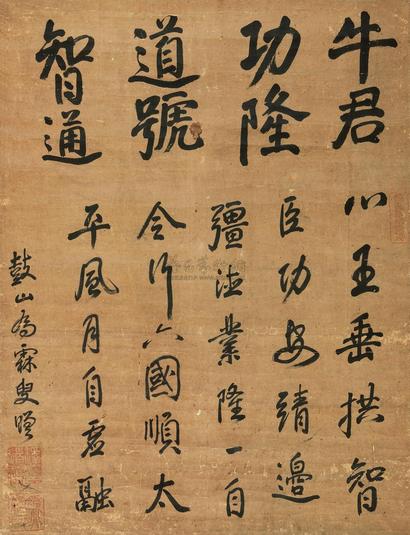 牛君
功隆
道號
智通
心王垂拱智
臣功安靖邊
疆德業隆一自
令行六國順太
平風月自虛融
鼓山為霖叟贈